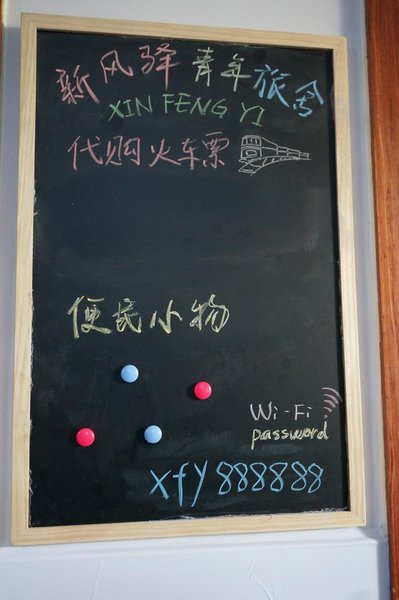 新风驿青年旅舍
XIN FENG YI
代购火车票
便民小物
Wi-Fi
password
xfy888888